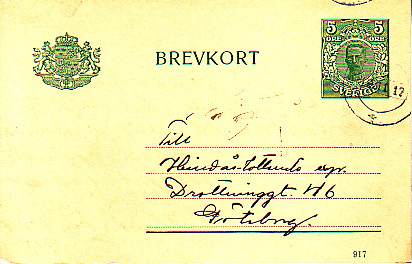 BREVKORT
5 5
ÖRE ÖRE
SVERIGE
17
Till
Hindås-Tottunds exp.
Drottninggt. 46
Göteborg.
917